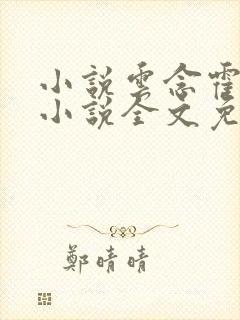 小說雲念霍
小說全文免
鄭晴晴